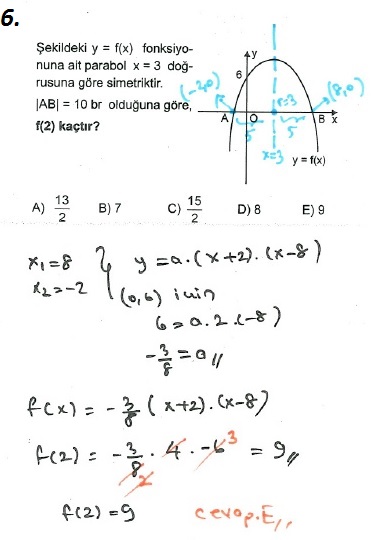 6.
Şekildeki y = f(x) fonksiyo-
nuna ait parabol x = 3 doğ-
rusuna göre simetriktir.
|AB| = 10 br olduğuna göre,
f(2) kaçtır?
y
6
(-2,0)
(8,0)
r=3
A O B x
5 5
x=3
y = f(x)
A) 13/2 B) 7 C) 15/2 D) 8 E) 9
x₁=8
x₂=-2
y=a.(x+2).(x-8)
(0,6) için
6=a.2.(-8)
-3/8=a//
f(x) = -3/8 (x+2).(x-8)
f(2) = -3/8 . 4 . -6 = 9//
2 3
f(2)=9
cevap.E//